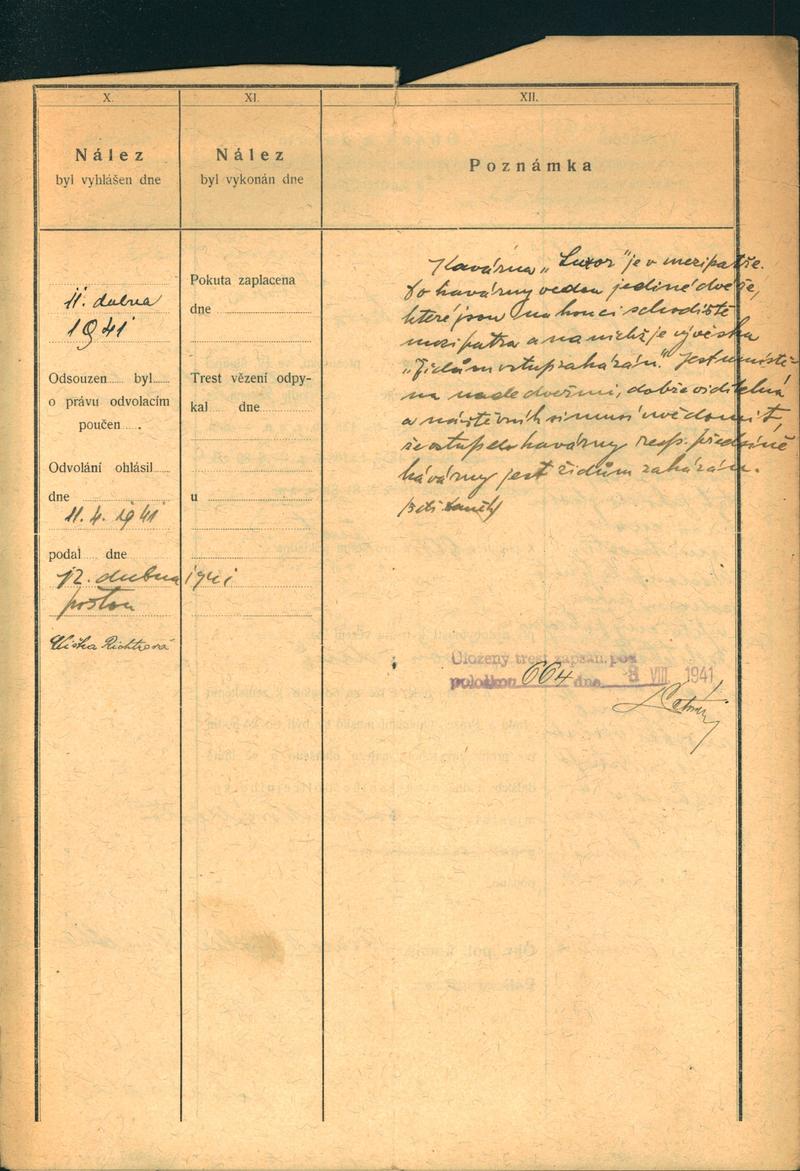 X.
Nález
byl vyhlášen dne
11. dubna
1941
Odsouzen byl
o právu odvolacím
poučen .
Odvolání ohlásil
dne
11.4. 1941
podal dne
12. dubna 1941
poštou
Richterová
XI.
Nález
byl vykonán dne
Pokuta zaplacena
dne
Trest vězení odpy-
kal dne
u
XII.
Poznámka
Kavárna „Luxor" je v mezipatře.
Do kavárny vedou jediné dveře,
které jsou na konci schodiště
mezipatra a na nichž je vývěska
„Židům vstup zakázán." Jest umístě-
na nade dveřmi, dobře viditelná
a návštěvník si musí uvědomit,
že vstup do kavárny resp. předsíně
kavárny jest židům zakázán.
Uložený trest zapsán pod
položkou 664 dne 8 VIII. 1941